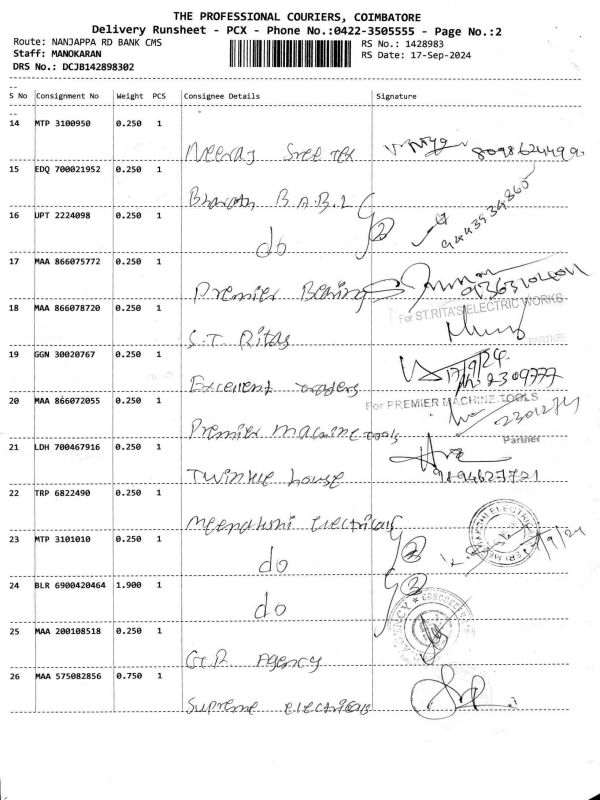 THE PROFESSIONAL COURIERS, COIMBATORE
Delivery Runsheet - PCX - Phone No.:0422-3505555 - Page No.:2
Route: NANJAPPA RD BANK CMS
RS No.: 1428983
Staff: MANOKARAN
RS Date: 17-Sep-2024
DRS No.: DCJB142898302
S No Consignment No Weight PCS Consignee Details Signature
14 MTP 3100950 0.250 1
Neeraj Sree Tex 8098624499
15 EDQ 700021952 0.250 1
Bharath B.A.B.L
16 UPT 2224098 0.250 1
do 2 9443934865
17 MAA 866075772 0.250 1
Premier Bearing
18 MAA 866078720 0.250 1
For ST.RITA'S ELECTRIC WORKS
S.T Ritas
19 GGN 30020767 0.250 1
17/9/24.
Excellent traders Ph: 2309777
20 MAA 866072055 0.250 1
For PREMIER MACHINE TOOLS
Premier machine tools
Partner
21 LDH 700467916 0.250 1
Twinkle house 9894627721
22 TRP 6822490 0.250 1
Meenakshi Electricals
23 MTP 3101010 0.250 1
do 2
24 BLR 6900420464 1.900 1
do 3
25 MAA 200108518 0.250 1
G.R Agency
26 MAA 575082856 0.750 1
Supreme electricals